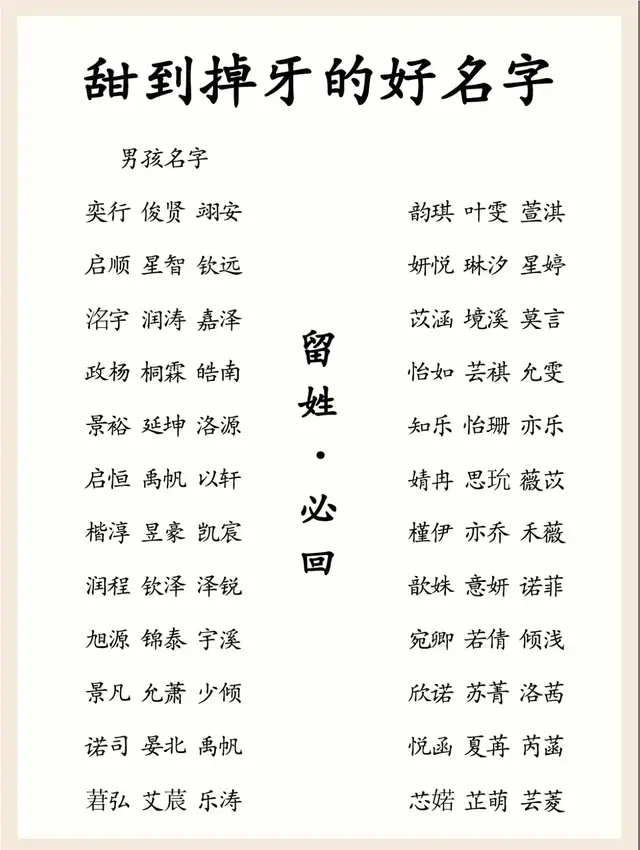 甜到掉牙的好名字
男孩名字
奕行 俊贤 翊安
启顺 星智 钦远
洺宇 润涛 嘉泽
政杨 桐霖 皓南
景裕 延坤 洛源
启恒 禹帆 以轩
楷淳 昱豪 凯宸
润程 钦泽 泽锐
旭源 锦泰 宇溪
景凡 允萧 少倾
诺司 晏北 禹帆
莙弘 艾莀 乐涛
留姓·必回
韵琪 叶雯 萱淇
妍悦 琳汐 星婷
苡涵 境溪 莫言
怡如 芸祺 允雯
知乐 怡珊 亦乐
婧冉 思玧 薇苡
槿伊 亦乔 禾薇
歆姝 意妍 诺菲
宛卿 若倩 倾浅
欣诺 苏菁 洛茜
悦函 夏苒 芮菡
芯婼 芷萌 芸菱